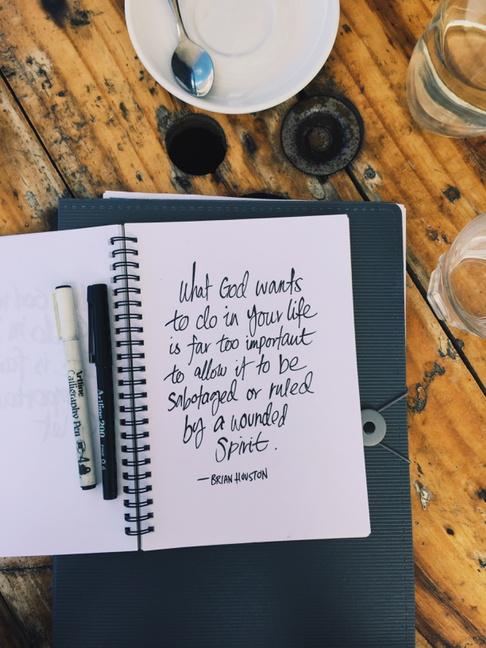 What God wants
to do in your life
is far too important
to allow it to be
sabotaged or ruled
by a wounded
Spirit.
— BRIAN HOUSTON
Artline
Calligraphy Pen
Artline 200